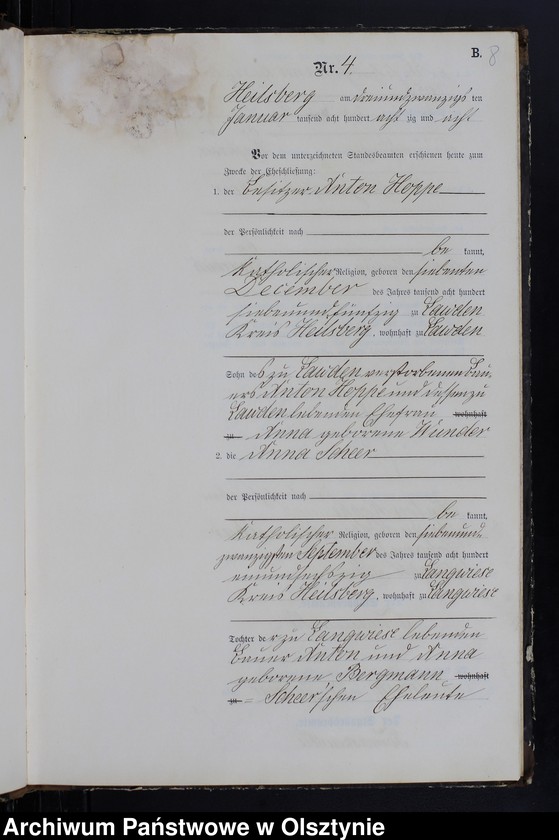 B. 8
Nr. 4.
Heilsberg am dreiundzwanzigs ten
Januar tausend acht hundert acht zig und acht
Vor dem unterzeichneten Standesbeamten erschienen heute zum
Zwecke der Eheschließung:
1. der Besitzer Anton Hoppe
der Persönlichkeit nach
be kannt,
katholischer Religion, geboren den siebenten
December des Jahres tausend acht hundert
siebenundfünfzig zu Lawden
Kreis Heilsberg, wohnhaft zu Lawden
Sohn des zu Lawden verstorbenen Bau-
ers Anton Hoppe und dessen zu
Lawden lebenden Ehefrau wohnhaft
zu Anna geborene Wunder
2. die Anna Scheer
der Persönlichkeit nach
be kannt,
katholischer Religion, geboren den siebenund-
zwanzigsten September des Jahres tausend acht hundert
einundsechszig zu Langwiese
Kreis Heilsberg, wohnhaft zu Langwiese
Tochter der zu Langwiese lebenden
Bauer Anton und Anna
geborene Bergmann wohnhaft
zu = Scheer'schen Eheleute
Archiwum Państwowe w Olsztynie